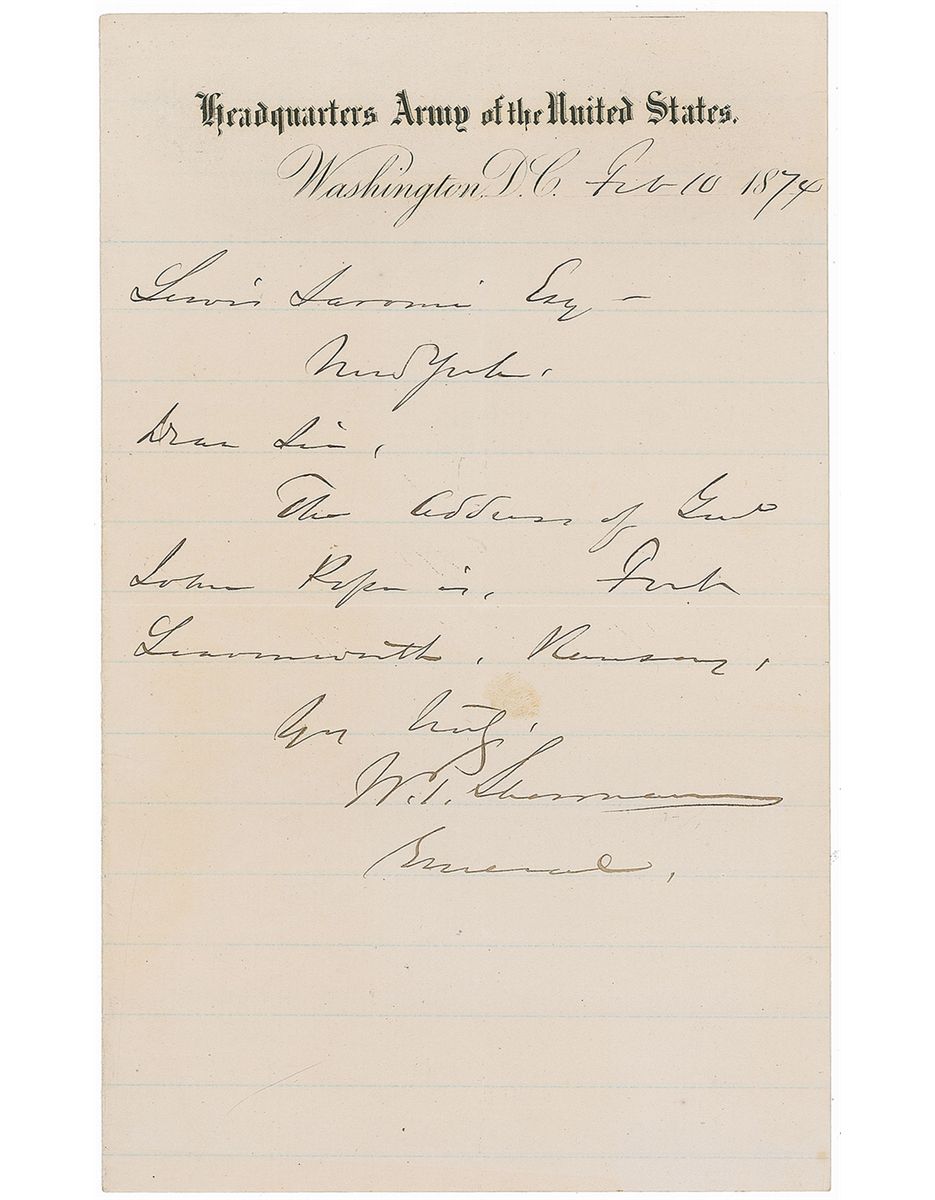 Headquarters Army of the United States.
Washington, D.C. Feb 10 1874
Lewis Esq –
New York.
Dear Sir,
The address of Genl
John Pope is, Fort
Leavenworth, Kansas,
Yrs truly,
W.T. Sherman
General,